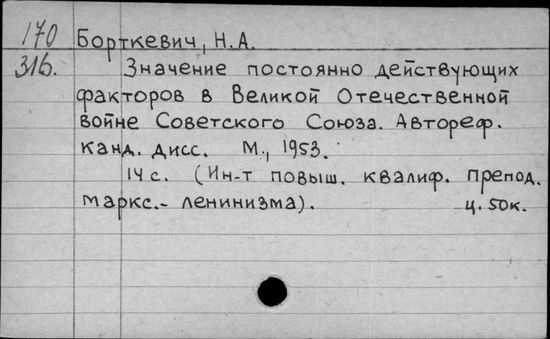 170 Борткевич, Н.А.
316. Значение постоянно действующих
факторов в Великой Отечественной
войне Советского Союза. Автореф.
канд. дисс. М., 1953.
14 с. (Ин-т повыш. квалиф. препод.
маркс.- ленинизма). ц. 50к.